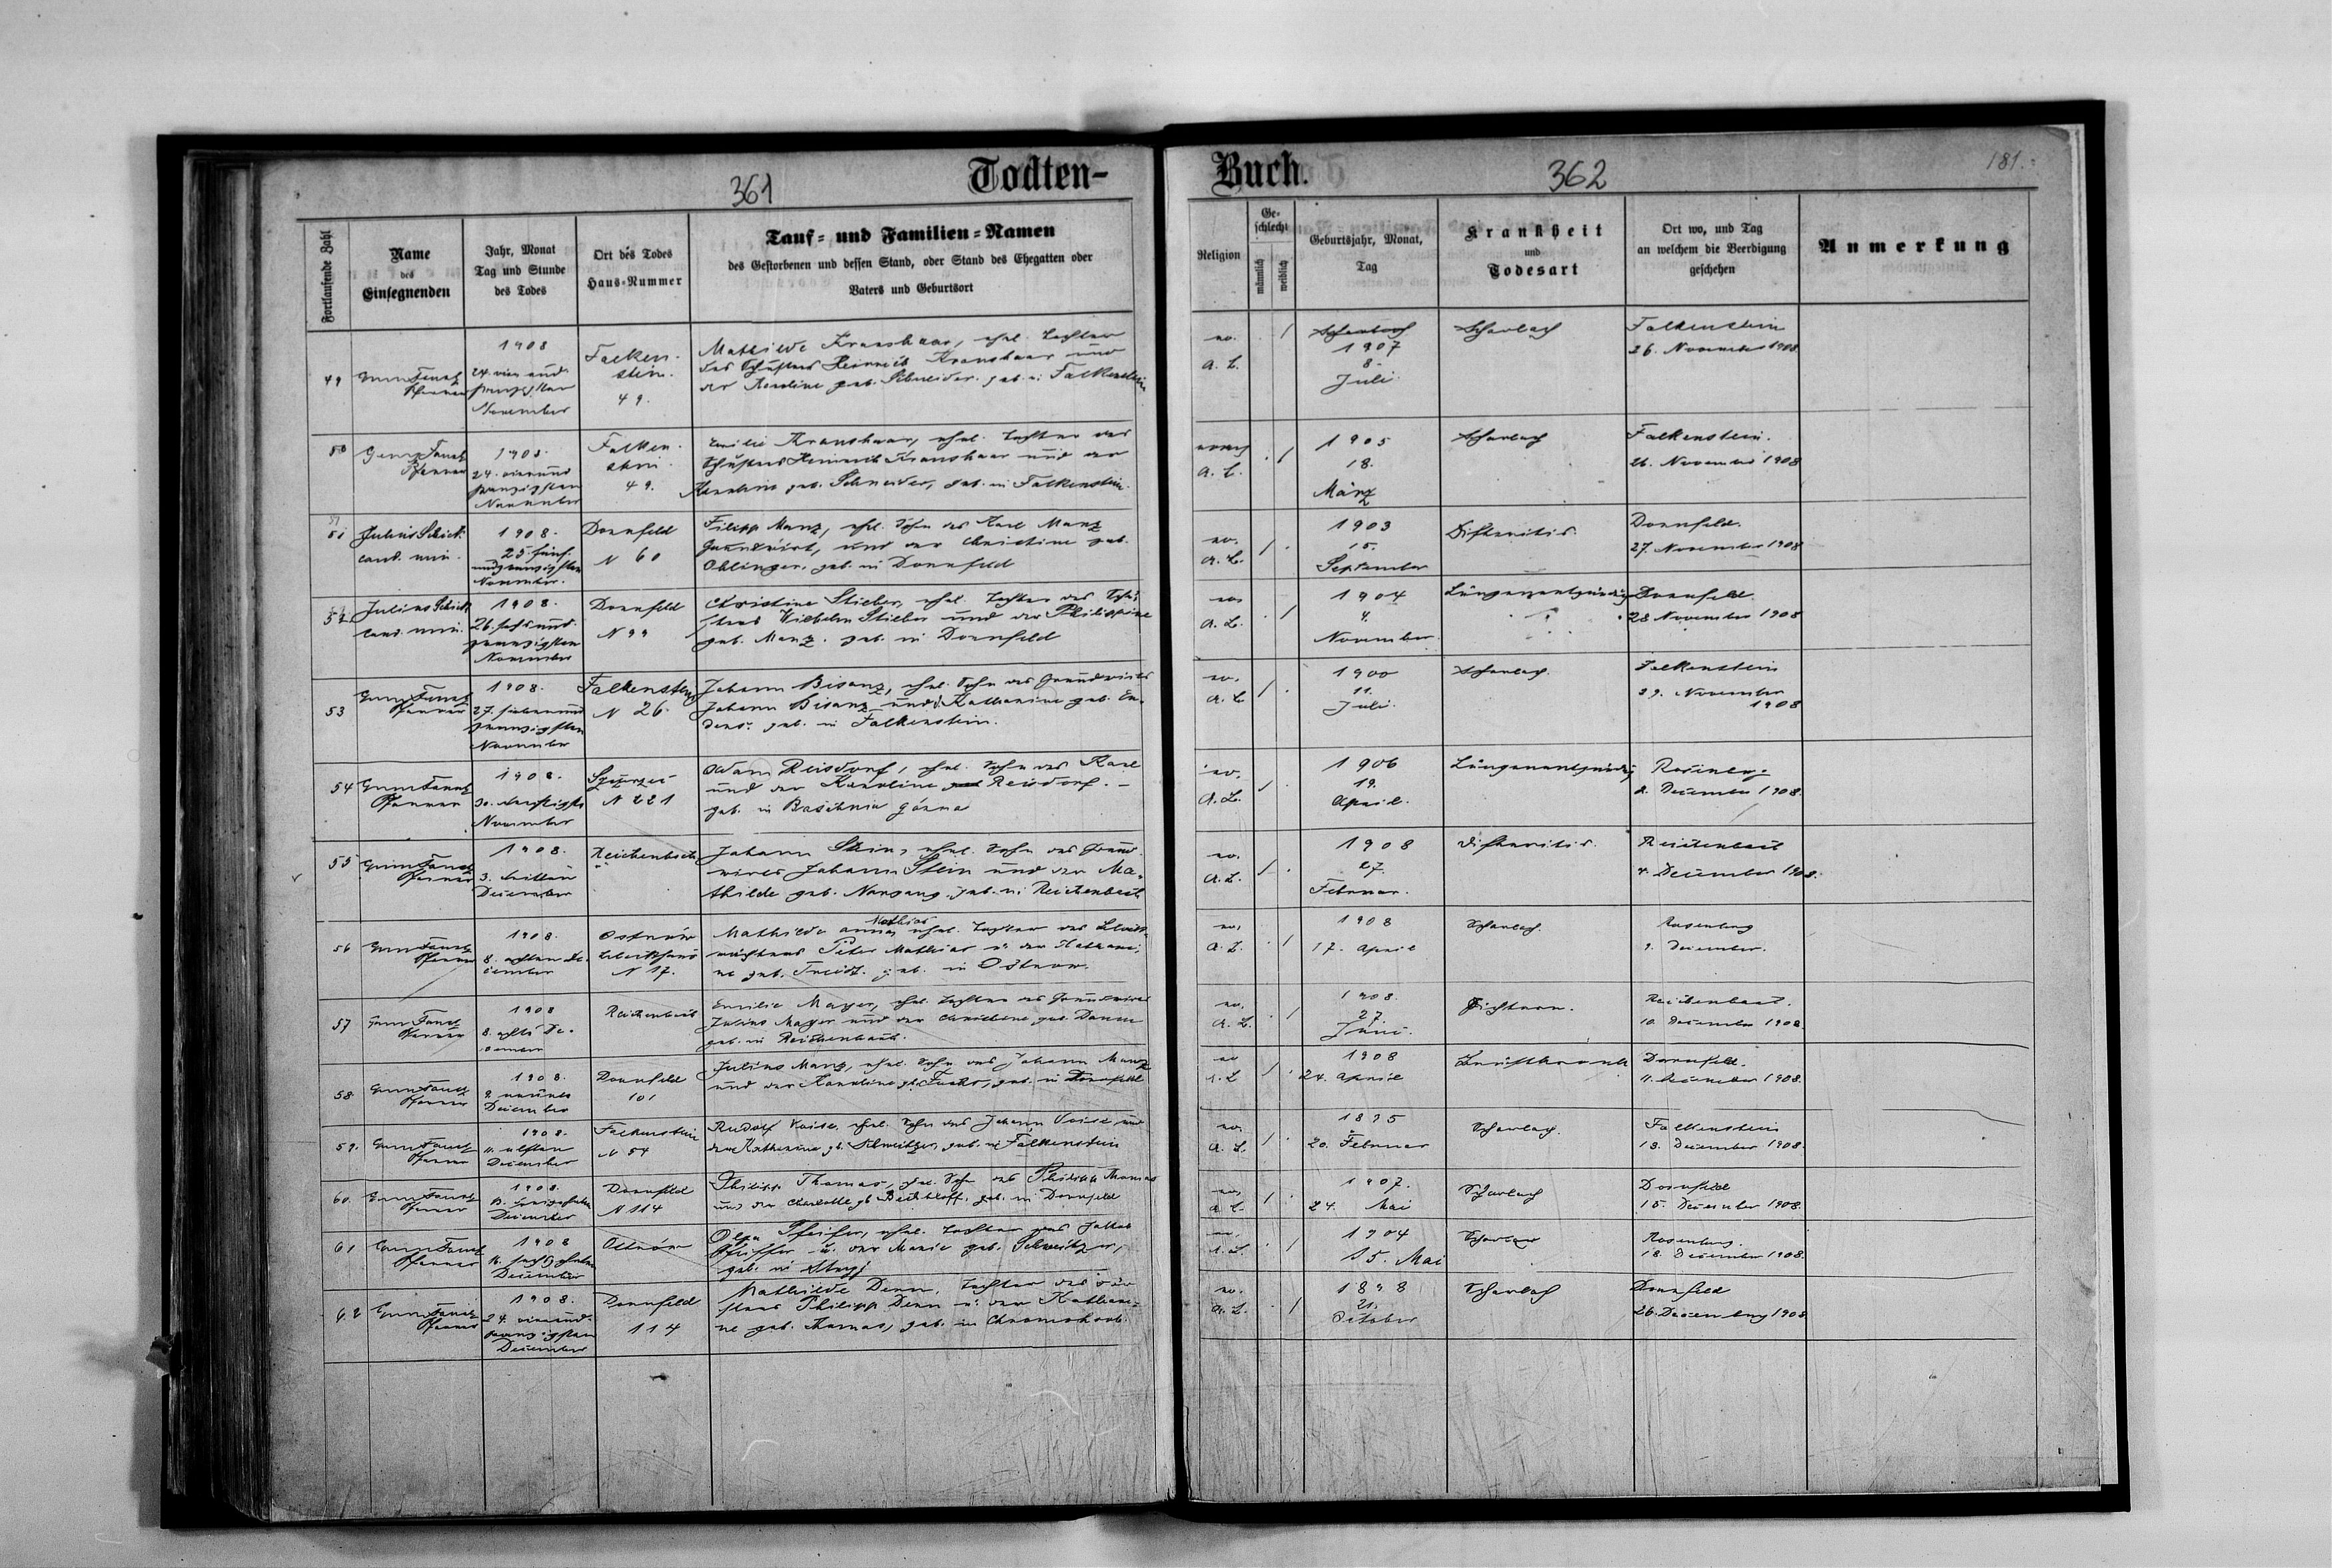 361
Todten-
Buch.
362
181.
Fortlaufende Zahl
Name
des
Einsegnenden
Jahr, Monat
Tag und Stunde
des Todes
Ort des Todes
Haus-Nummer
Tauf- und Familien-Namen
des Gestorbenen und dessen Stand, oder Stand des Ehegatten oder
Vaters und Geburtsort
Religion
Ge-
schlecht
männlich
weiblich
Geburtsjahr, Monat,
Tag
Krankheit
und
Todesart
Ort wo, und Tag
an welchem die Beerdigung
geschehen
Anmerkung
49
Pfarrer
1908
24. vier und
zwanzigsten
November
Falken-
stein.
49.
Mathilde Kranshaar, ehel. Tochter
des Heinrich Kranshaar und
der Karoline geb. Schneider. geb. in Falkenstein
ev.
A. L.
/
1907
8.
Juli
Scharlach
Falkenstein
26. November 1908
50
Pfarrer
1908.
24. vierund
zwanzigsten
November
Falken-
stein.
49.
Emilie Kranshaar, ehel. Tochter des
Heinrich Kranshaar und der
Karoline geb. Schneider, geb. in Falkenstein.
A. L.
/
1905
18.
März
Scharlach
Falkenstein.
26. November 1908
51
Julius Schick
cand. min.
1908.
25. fünf-
undzwanzigsten
November.
Dornfeld
N 60
Filipp Manz, ehel. Sohn des Karl Manz
Grundwirt, und der Christine geb.
Ohlinger. geb. in Dornfeld
ev.
A. L.
/
1903
15.
September
Difteritis.
Dornfeld.
27. November 1908
52
Julius Schick
cand. min.
1908.
26. sechsund-
zwanzigsten
November
Dornfeld
N 99
Christine Stieber, ehel. Tochter des
Wilhelm Stieber und der Philippine
geb. Manz. geb. in Dornfeld
ev.
A. L.
/
1904
4.
November
Lungenentzündung
Dornfeld.
28 November 1908
53
Pfarrer
1908.
27. siebenund
zwanzigsten
November
Falkenstein
N 26.
Johann Bisanz, ehel. Sohn des Grundwirts
Johann Bisanz und Katharine geb. En-
ders. geb. in Falkenstein.
ev.
A. L.
/
1900
11.
Juli.
Scharlach.
Falkenstein
29. November
1908
54
Pfarrer
1908.
30. dreißigsten
November
N 221
Adam Reisdorf, ehel. Sohn des Karl
und der Karoline Reisdorf.
geb. in
ev.
A. L.
/
1906
19.
April.
Lungenentzündung
Rosenberg
2. December 1908.
55
Pfarrer
1908.
3. dritten
December
Reichenbach
Johann Stein, ehel. Sohn des Grund-
wirts Johann Stein und der Ma-
thilde geb. Nargang. geb. in Reichenbach
ev.
A. L.
/
1908
27.
Februar.
Difteritis.
Reichenbach
4. December 1908.
56
Pfarrer
1908.
8. achten De-
cember
Ostrów
N 17.
Mathilde Anna Mathias ehel. Tochter des
Peter Mathias u. der Kathari-
ne geb. geb. in Ostrow.
ev.
A. L.
/
1908
17. April
Scharlach.
Rosenberg
9. December.
57
Pfarrer
1908
8. De-
cember
Reichenbach
Emilie Mayer, ehel. Tochter des Grundwirts
Julius Mayer und der Christine geb.
geb. in Reichenbach.
ev.
A. L.
/
1908.
27.
Juni.
Reichenbach.
10. December 1908.
58
Pfarrer
1908.
9. neunten
December
Dornfeld
101
Julius Manz, ehel. Sohn des Johann Manz
und der Karoline gb. Fuchs, geb. in Dornfeld
ev
A. L
/
1908
24. April
Dornfeld.
11. December 1908.
59.
Pfarrer
1908.
11. elften
December
Falkenstein
N 54
Rudolf ehel. Sohn des Johann und
der Katharina gb. Schweitzer, geb. in Falkenstein
ev.
A. L.
/
1895
20. Februar
Scharlach.
Falkenstein
13. December 1908.
60.
Pfarrer
1908.
13. dreizehnten
December
Dornfeld
N 114
Philipp Thomas, ehel. Sohn des Philipp Thomas
und der Charlotte gb. Bechtloff. geb. in Dornfeld
ev.
A. L.
/
1907.
24. Mai
Scharlach
Dornfeld
15. December 1908.
61
Pfarrer
1908
16. sechzehnten
December
Olga Pfeifer, ehel. Tochter des Jakob
Pfeiffer u. der Marie geb. Schweitzer,
geb. in
/
1904
15. Mai
Scharlach
Rosenberg.
18. December 1908.
62
Pfarrer
1908.
24. vierund-
zwanzigsten
December
Dornfeld
114
Mathilde Denn, Tochter des
Philipp Denn u. der Kathari-
ne geb. Thomas, geb. in
ev.
A. L.
/
1898
21.
October
Scharlach
Dornfeld
26. December 1908